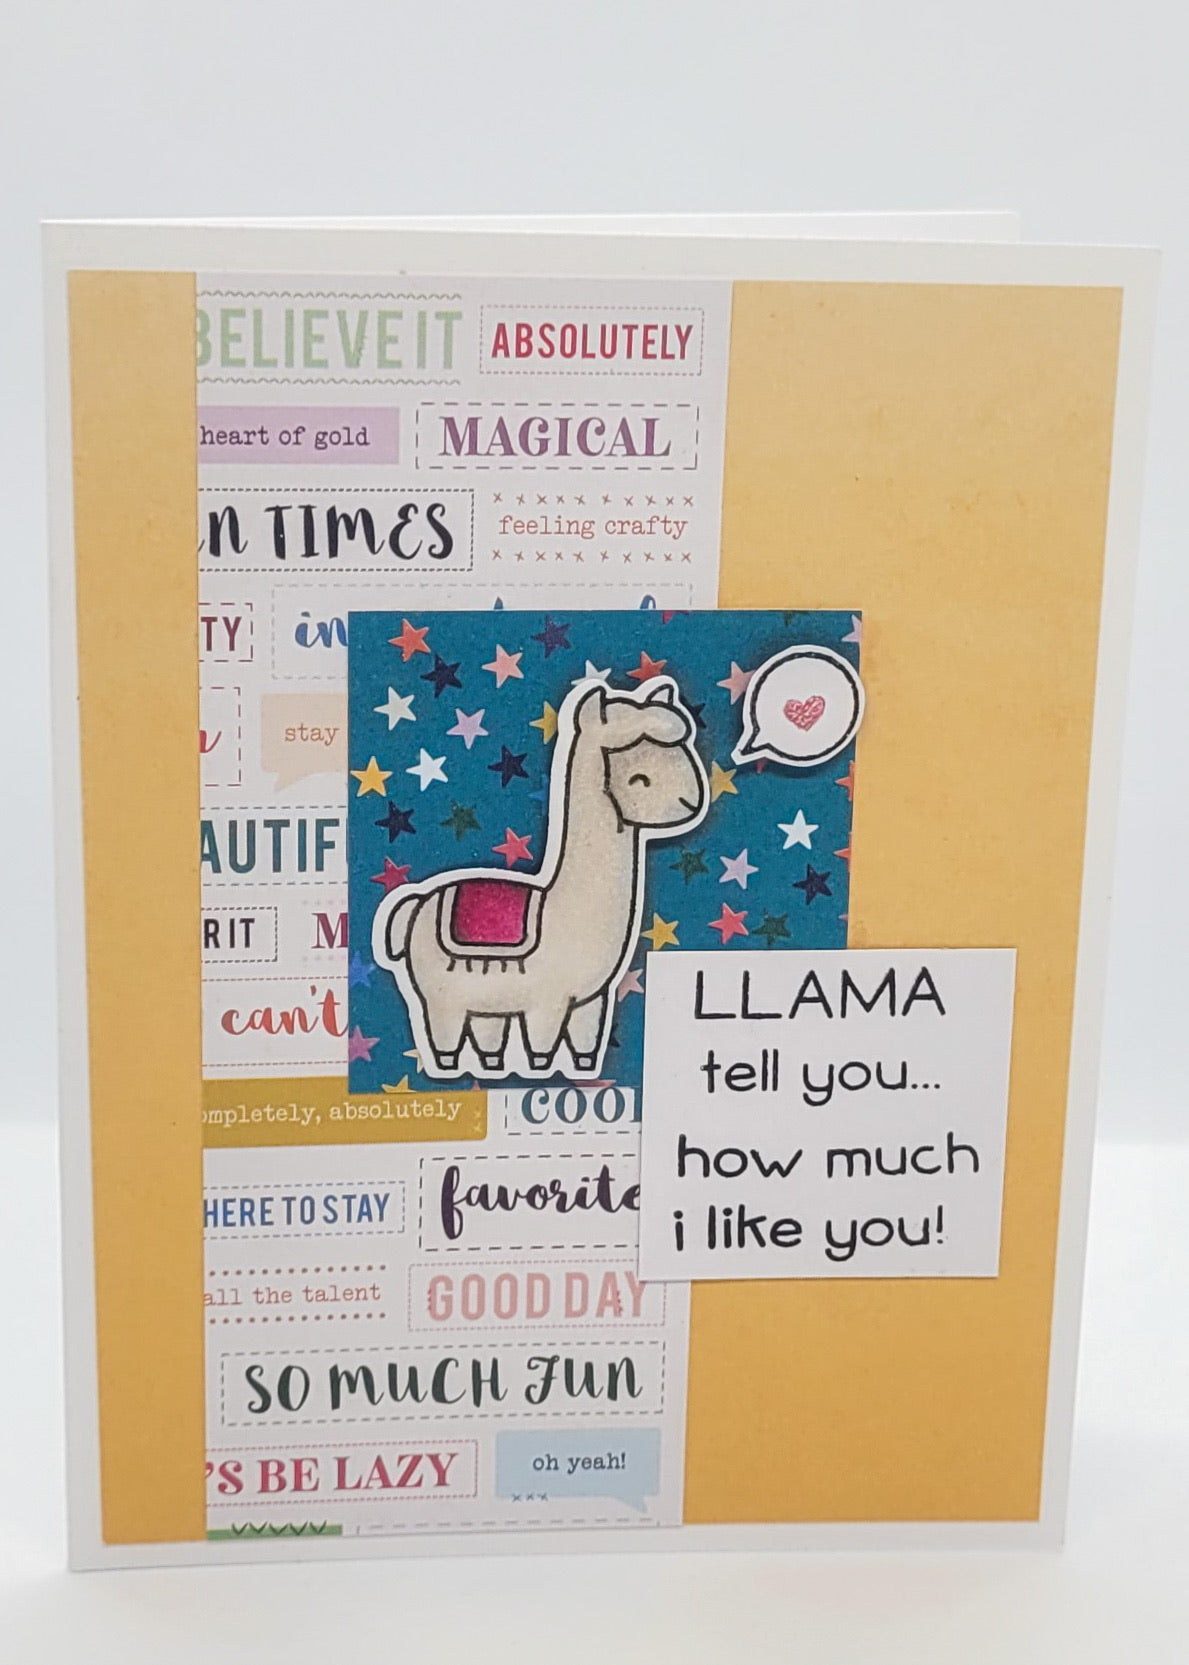 BELIEVE IT
ABSOLUTELY
heart of gold
MAGICAL
TIMES
feeling crafty
stay
R IT
can't
absolutely
HERE TO STAY
favorite
all the talent
GOOD DAY
SO MUCH FUN
'S BE LAZY
oh yeah!
LLAMA
tell you...
how much
i like you!